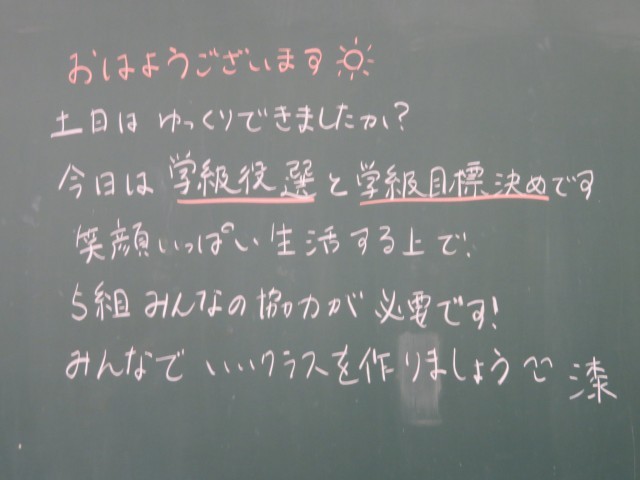 おはようございます
土日は ゆっくりできましたか?
今日は 学級役選と学級目標決めです
笑顔いっぱい生活する上で、
5組みんなの協力が必要です!
みんなで いいクラスを作りましょう
漆